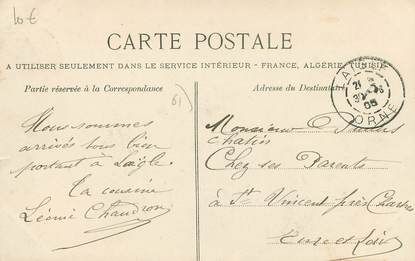 10 €
CARTE POSTALE
A UTILISER SEULEMENT DANS LE SERVICE INTÉRIEUR - FRANCE, ALGÉRIE, TUNISIE
Partie réservée à la Correspondance
Adresse du Destinataire
61
ORNE
Nous sommes
arrivés tous bien
portant à Laigle.
Ta cousine
Léonie Chaudron
Monsieur
Chez ses Parents
à St Vincent près Chartres
Eure et Loir